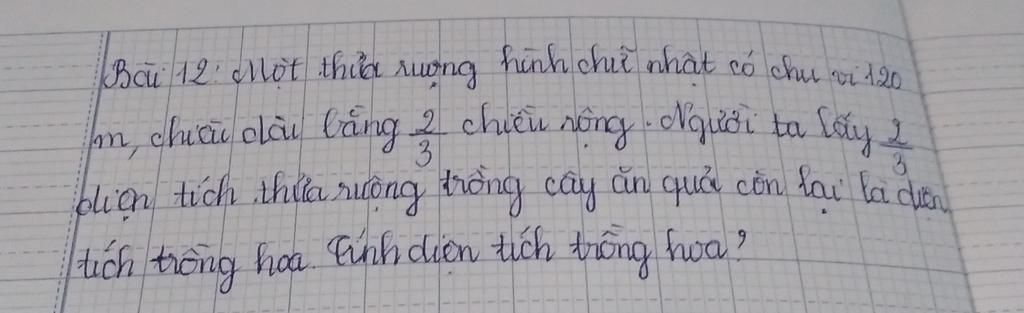 Bài 12: Một thửa ruộng hình chữ nhật có chu vi 120
m, chiều dài bằng 2/3 chiều rộng. Người ta lấy 2/3
diện tích thửa ruộng trồng cây ăn quả còn lại là diện
tích trồng hoa. Tính diện tích trồng hoa?